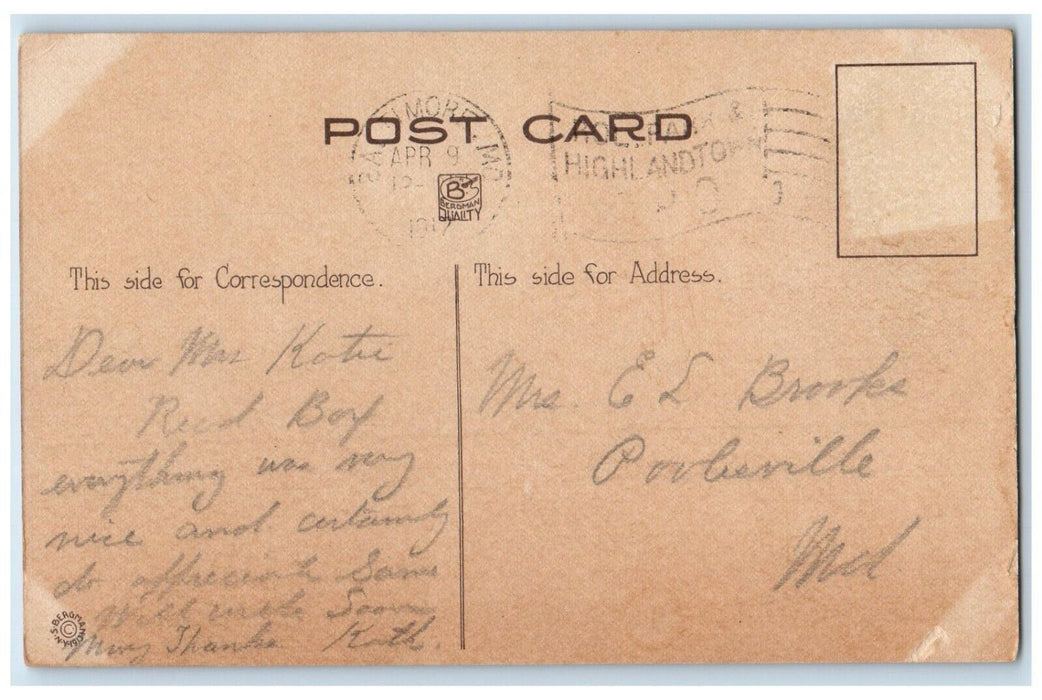 POST CARD
BALTIMORE, MD.
APR 9
191
HIGHLANDTOWN
B
BERGMAN
QUALITY
This side for Correspondence.
This side for Address.
Dear Mrs Katie
Recd Box
everything was very
nice and certainly
do appreciate Same
Will write Soon
Many Thanks Kath.
Mrs. E L Brooks
Poolesville
Md
S. BERGMAN